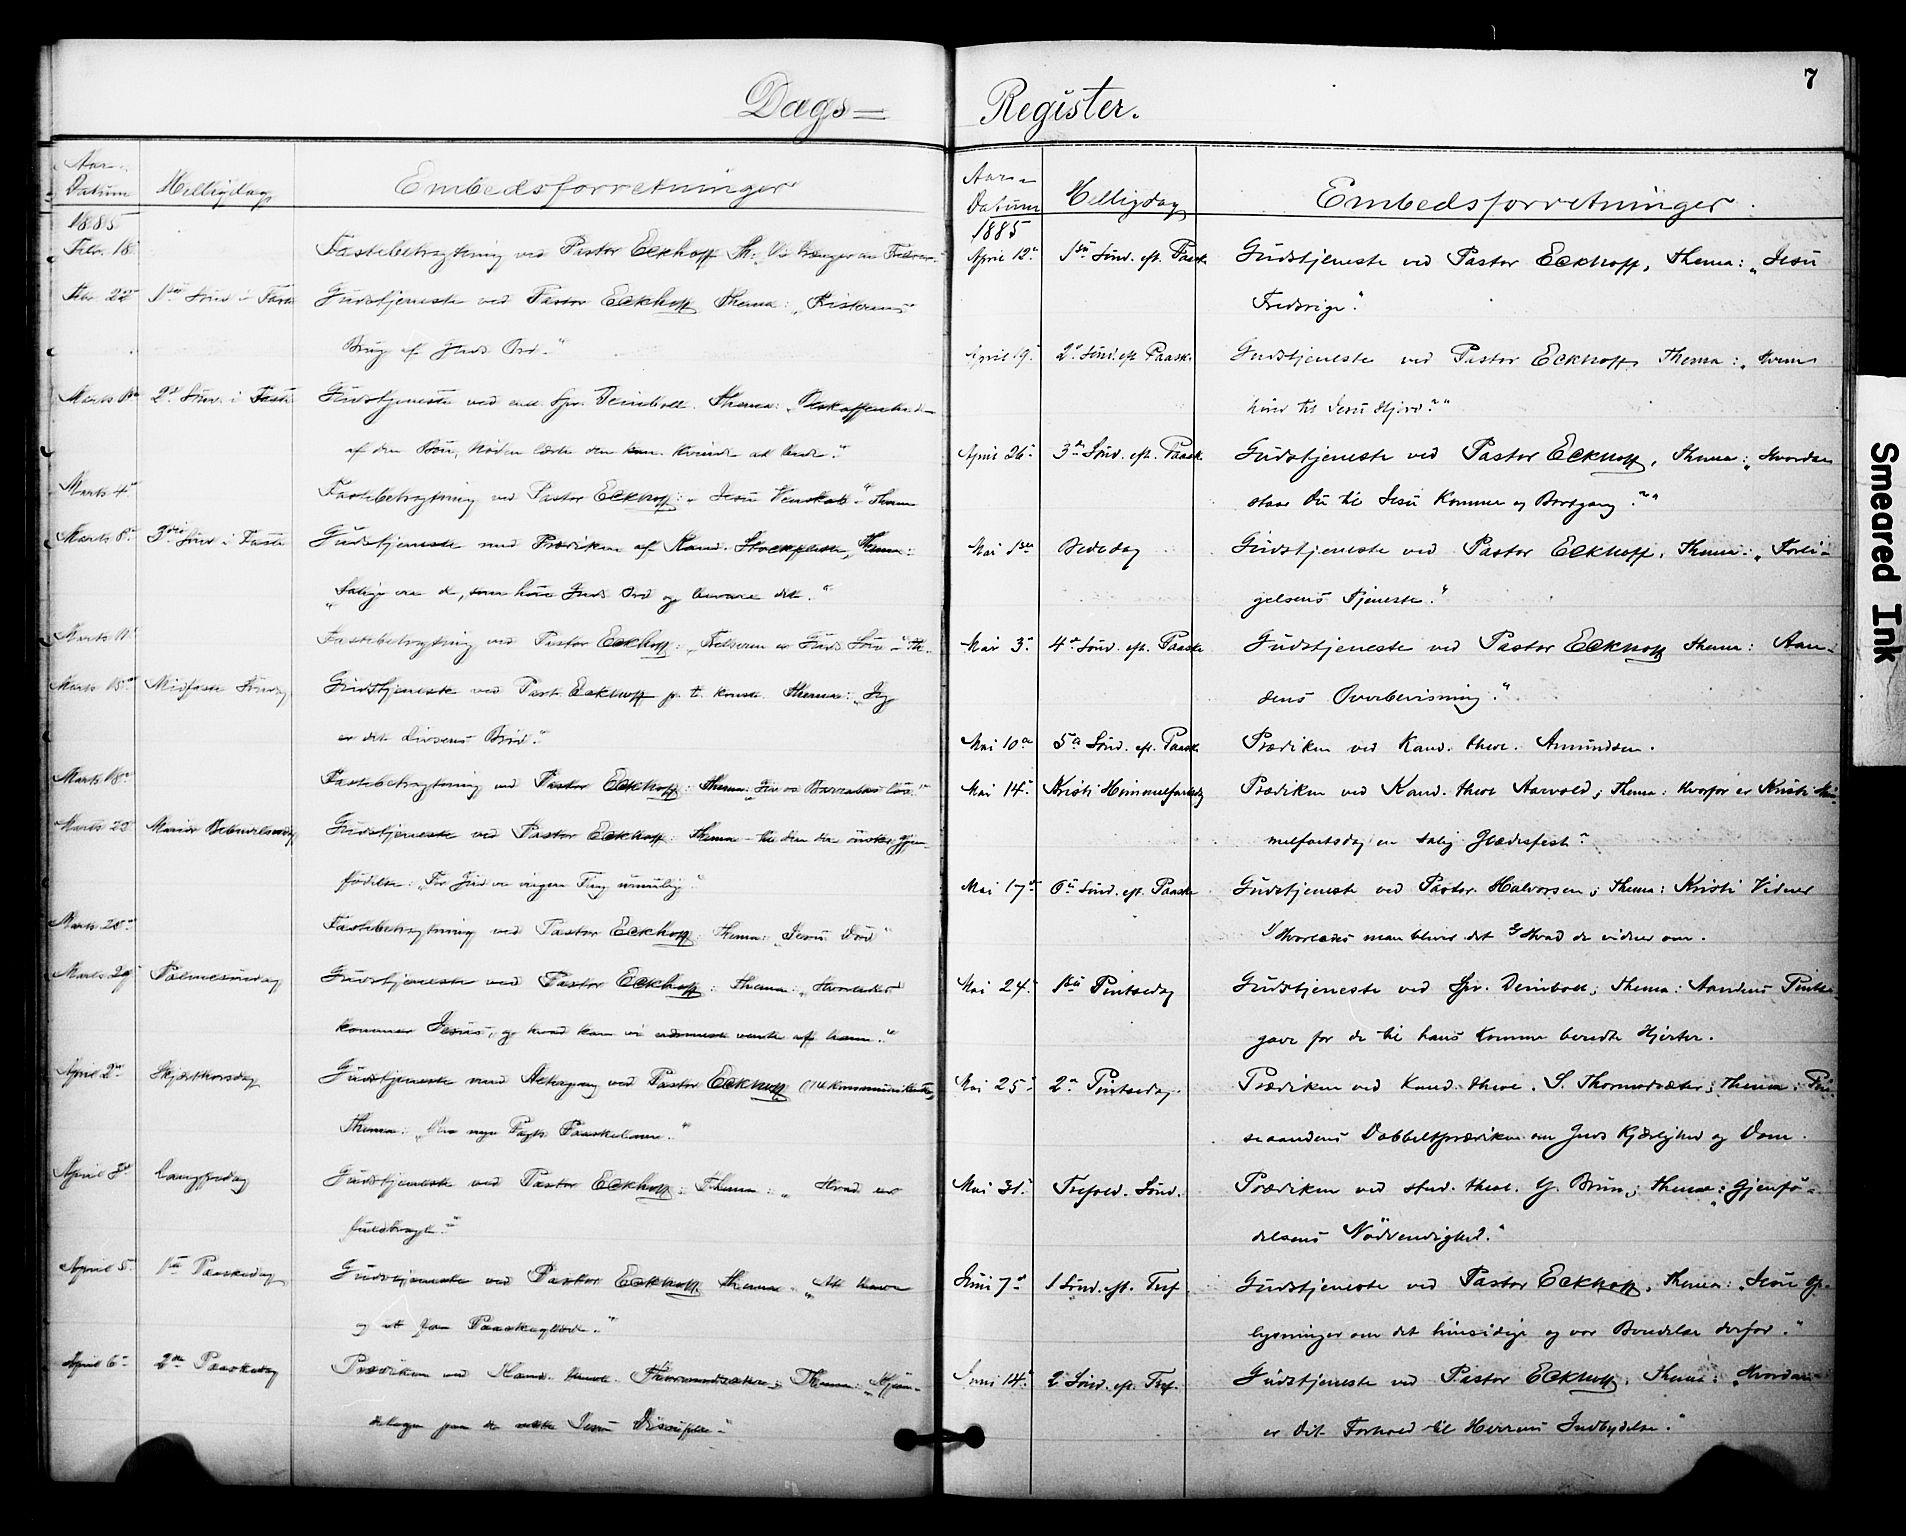 Dags=
Aar-
Datum Helligdag Embedsforretninger
1885
Febr. 18 Fastebetragtning ved Pastor Eckhoff Th:
22 1ste Sönd i Faste Gudstjeneste ved Pastor Eckhoff Thema:
Brug af Guds Ord."
Marts 2d Sönd. i Faste Gudstjeneste ved Thema:
af den Bön, Nöden lærte den kan. Kvinde at bede."
Marts 4 Fastebetragtning ved Pastor Eckhoff: "Jesu Venskab" Thema
Marts 8 3die Sönd i Faste Gudstjeneste med Prædiken af Kand. Thema:
"Salige ere de, som höre Guds Ord og bevare det."
Marts 11 Fastebetragtning ved Pastor Eckhoff: "Frelseren er Guds Sön" Th.
Marts 15 Midfaste Söndag Gudstjeneste ved Past. Eckhoff p. t. Thema: "Jeg
er det Livsens Bröd."
Marts 18 Fastebetragtning ved Pastor Eckhoff: Thema: "Giv os Barrabas lös."
Marts Mariæ Bebudelsesdag Gudstjeneste ved Pastor Eckhoff: Thema- til den der önsker Gjen-
födelse: "For Gud er ingen Ting umulig."
Marts Fastebetragtning ved Pastor Eckhoff: Thema: "Jesu Död"
Marts 29 Palmesöndag Gudstjeneste ved Pastor Eckhoff: Thema: "Hvorledes
kommer Jesus, og hvad kan vi vente af ham."
April 2 Skjærthorsdag Gudstjeneste med Altergang ved Pastor Eckhoff
Thema: "Den nye Pagts Paaskelam."
April 3 Langfredag Gudstjeneste ved Pastor Eckhoff: Thema: "Hvad er
fuldbragt."
April 5 1ste Paaskedag Gudstjeneste ved Pastor Eckhoff Thema "At have
og at faa Paaskeglæde."
April 6 2den Paaskedag Prædiken ved Kand. theol. Thema:
Jesu Disciple"
Register.
7
Aar-
Datum Helligdag Embedsforretninger.
1885
April 12 1ste Sönd. eft. Paask. Gudstjeneste ved Pastor Eckhoff, Thema: "Jesu
Fredsrige."
April 19 2 Sönd. eft. Paask. Gudstjeneste ved Pastor Eckhoff, Thema: "Hvem
hörer til Jesu Hjord?"
April 26 3die Sönd. eft. Paask. Gudstjeneste ved Pastor Eckhoff, Thema: "Hvordan
staar du til Jesu Komme og Bortgang?"
Mai 1ste Bededag Gudstjeneste ved Pastor Eckhoff, Thema: "Forli-
gelsens Tjeneste."
Mai 3 4de Sönd. eft. Paaske Gudstjeneste ved Pastor Eckhoff Thema: Aan-
dens Overbevisning."
Mai 10de 5te Sönd. eft. Paask. Prædiken ved Kand. theol. Amundsen.
Mai 14 Kristi Himmelfartsdag Prædiken ved Kand. theol Aarvold; Thema: Hvorfor er Kristi Him-
melfartsdag en salig Glædesfest?
Mai 17de 6te Sönd. eft. Paaske Gudstjeneste ved Pastor Halvorsen; Thema: Kristi Vidner
1) Hvorledes man bliver det 2) Hvad de vidner om.
Mai 24. 1ste Pintsedag Gudstjeneste ved Spr. Deinboll; Thema: Aandens Pintse-
gave for de til hans Komme beredte Hjerter.
Mai 25 2 Pintsedag. Prædiken ved Kand. theol. S. Thormodsæter; Thema: Pin-
seaandens Dobbeltprædiken om Guds Kjærlighed og Dom.
Mai 31. Trefold. Sönd. Prædiken ved stud. theol. G. Brun; Thema: "Gjenfö-
delsens Nödvendighed."
Juni 7de 1 Sönd. eft. Tref. Gudstjeneste ved Pastor Eckhoff, Thema: "Jesu Op-
lysninger om det hinsidige og vor Beredelse derfor."
Juni 14. 2 Sönd. eft. Tref. Gudstjeneste ved Pastor Eckhoff, Thema: "Hvordan
er dit Forhold til Herrens Indbydelse."
Smeared Ink